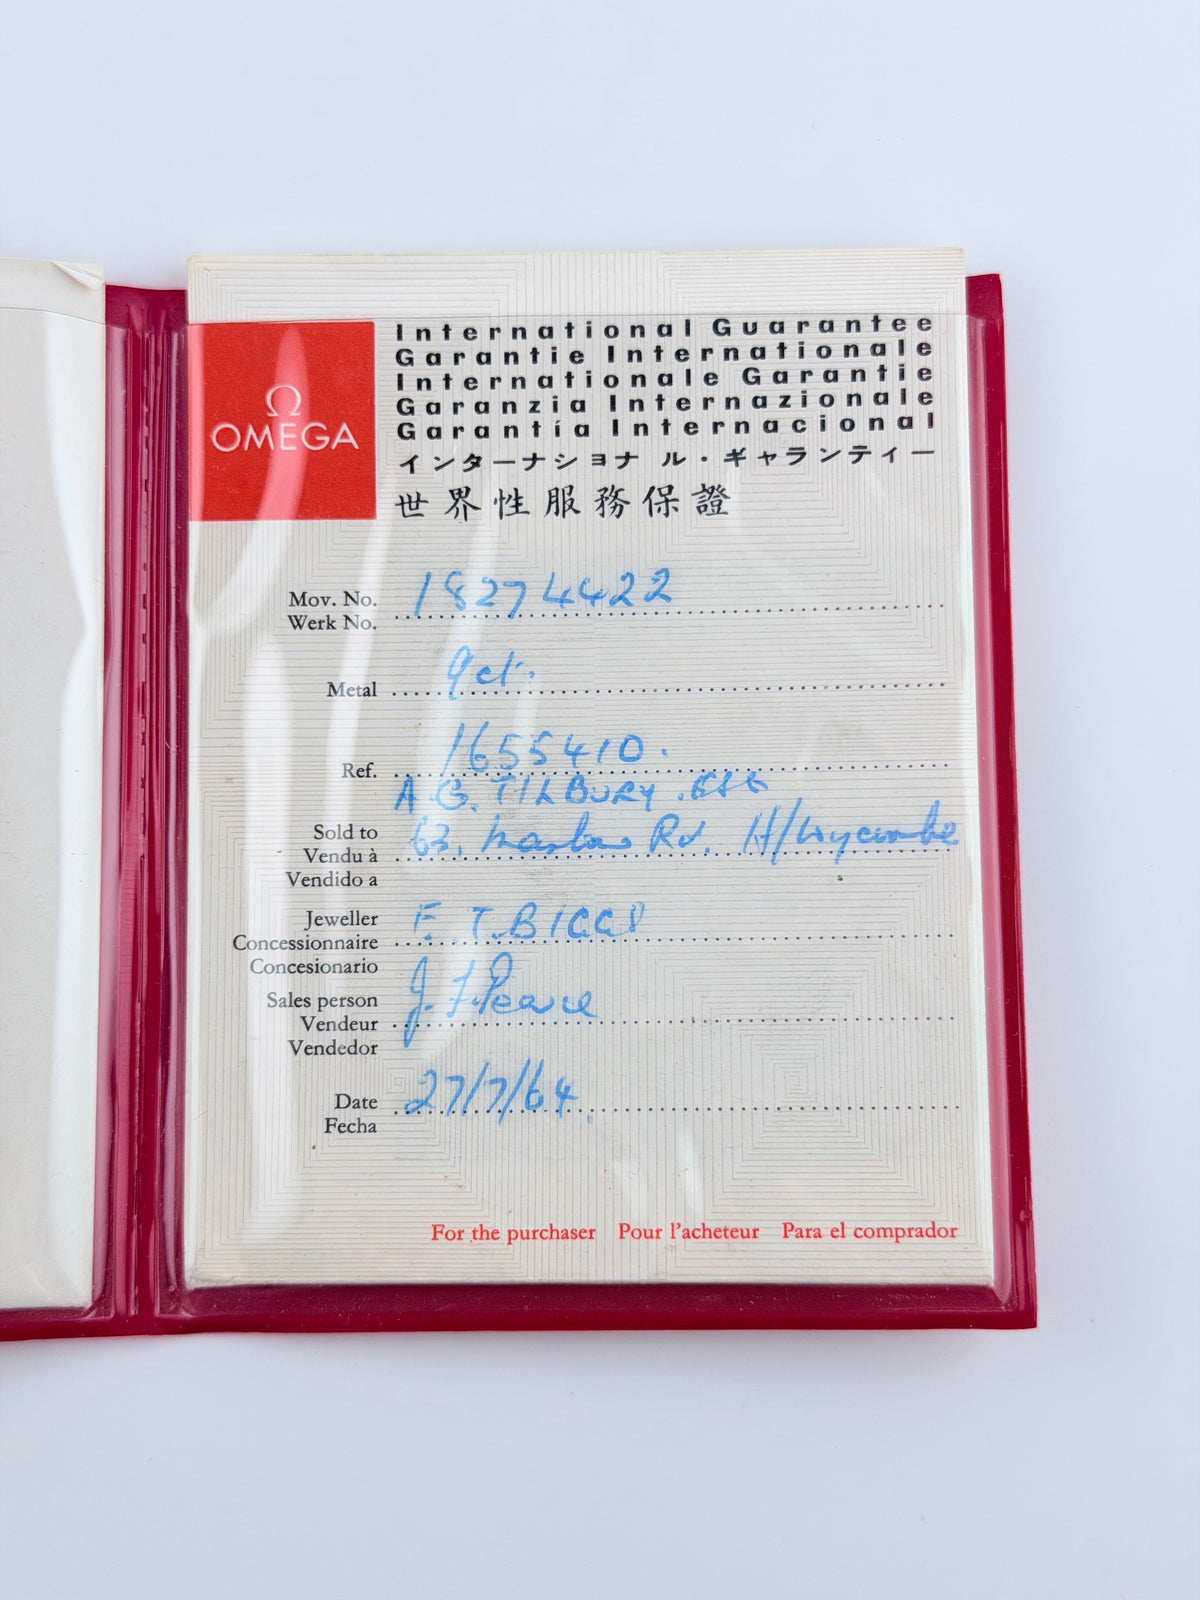 Ω
OMEGA
International Guarantee
Garantie Internationale
Internationale Garantie
Garanzia Internazionale
Garantía Internacional
インターナショナル・ギャランティー
世界性服務保證
Mov. No. 18274422
Werk No.
Metal 9ct.
Ref. 1655410.
A. G. TILBURY. ESQ
Sold to 63, Marlow Rd. H/Wycombe
Vendu à
Vendido a
Jeweller F. T. BIGGS
Concessionnaire
Concesionario
Sales person J. F. Pearce
Vendeur
Vendedor
Date 27/7/64
Fecha
For the purchaser Pour l'acheteur Para el comprador